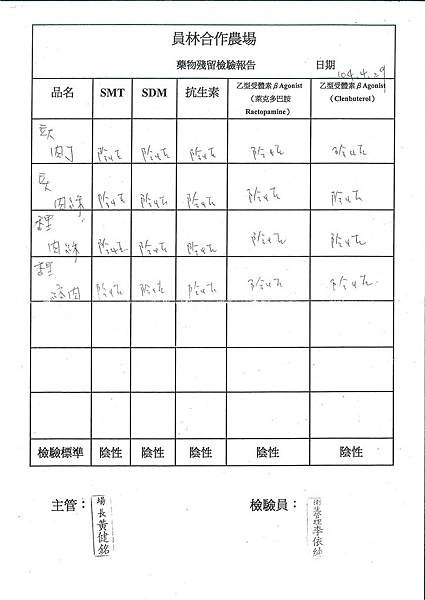 員林合作農場
藥物殘留檢驗報告 日期 104.4.29
品名 SMT SDM 抗生素 乙型受體素βAgonist（萊克多巴胺 Ractopamine） 乙型受體素βAgonist（Clenbuterol）
肉丁 陰性 陰性 陰性 陰性 陰性
肉絲 陰性 陰性 陰性 陰性 陰性
肉絲 陰性 陰性 陰性 陰性 陰性
肉 陰性 陰性 陰性 陰性 陰性
檢驗標準 陰性 陰性 陰性 陰性 陰性
主管： 場長黃健銘 檢驗員： 衛生管理李依